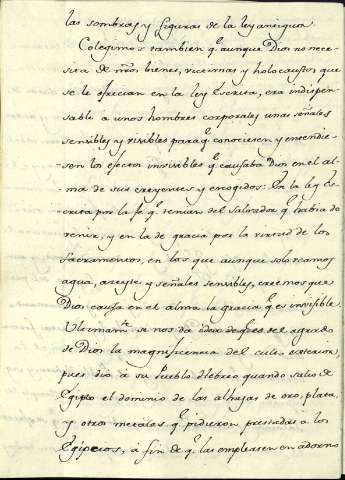 las sombras y figuras de la ley antigua.
Colegimos tambien q.e aunque Dios no nece-
sita de nr̃os bienes, victimas y holocaustos, que
se le ofrecian en la ley Escrita, era indispen-
sable a unos hombres corporales unas señales
sensibles y visibles para q.e conociesen y entendie-
sen los efectos invisibles q.e causaba Dios en el al-
ma de sus creyentes y escogidos: En la ley Es-
crita por la fe q.e tenian del Salvador q.e habia de
venir, y en la de gracia por la virtud de los
Sacramentos, en los que aunque solo veamos
agua, azeyte y señales sensibles, creemos que
Dios causa en el alma la gracia q.e es invisible.
Ultimam.te se nos da idea de q.e es del agrado
de Dios la magnificencia del culto exterior,
pues dio à su Pueblo Hebreo quando salio de
Egipto el dominio de las alhajas de oro, plata,
y otros metales q.e pidieron prestadas a los
Egipcios, à fin de q.e las empleasen en adorno